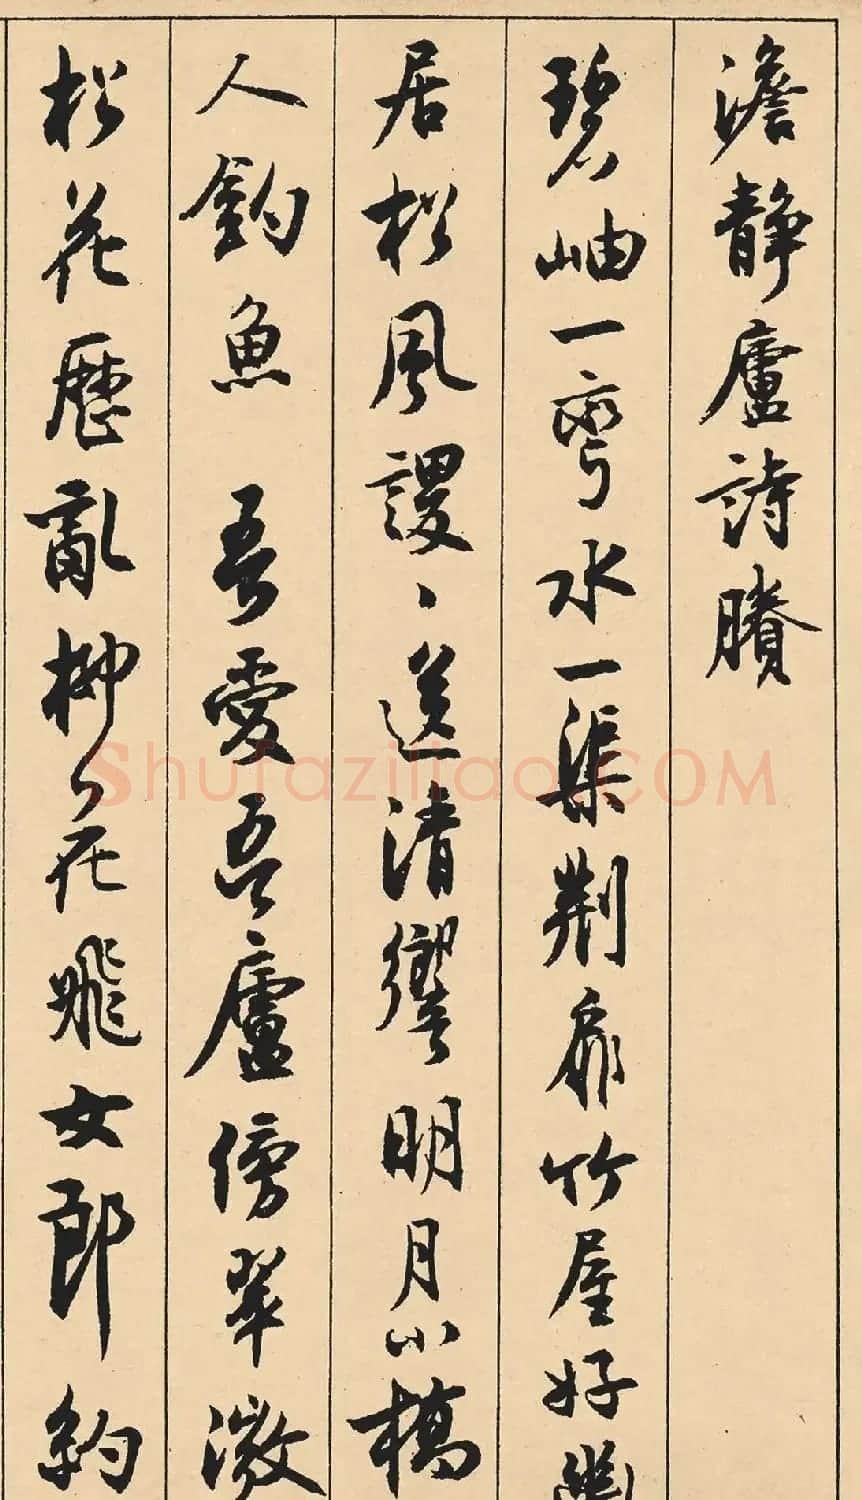 澹靜廬詩賸
碧岫一彎水一渠荆扉竹屋好幽
居松風謖〻送清響明月小橋
人釣魚 吾愛吾廬傍翠微
松花歷亂柳花飛女郎約
Shufaziliao.COM